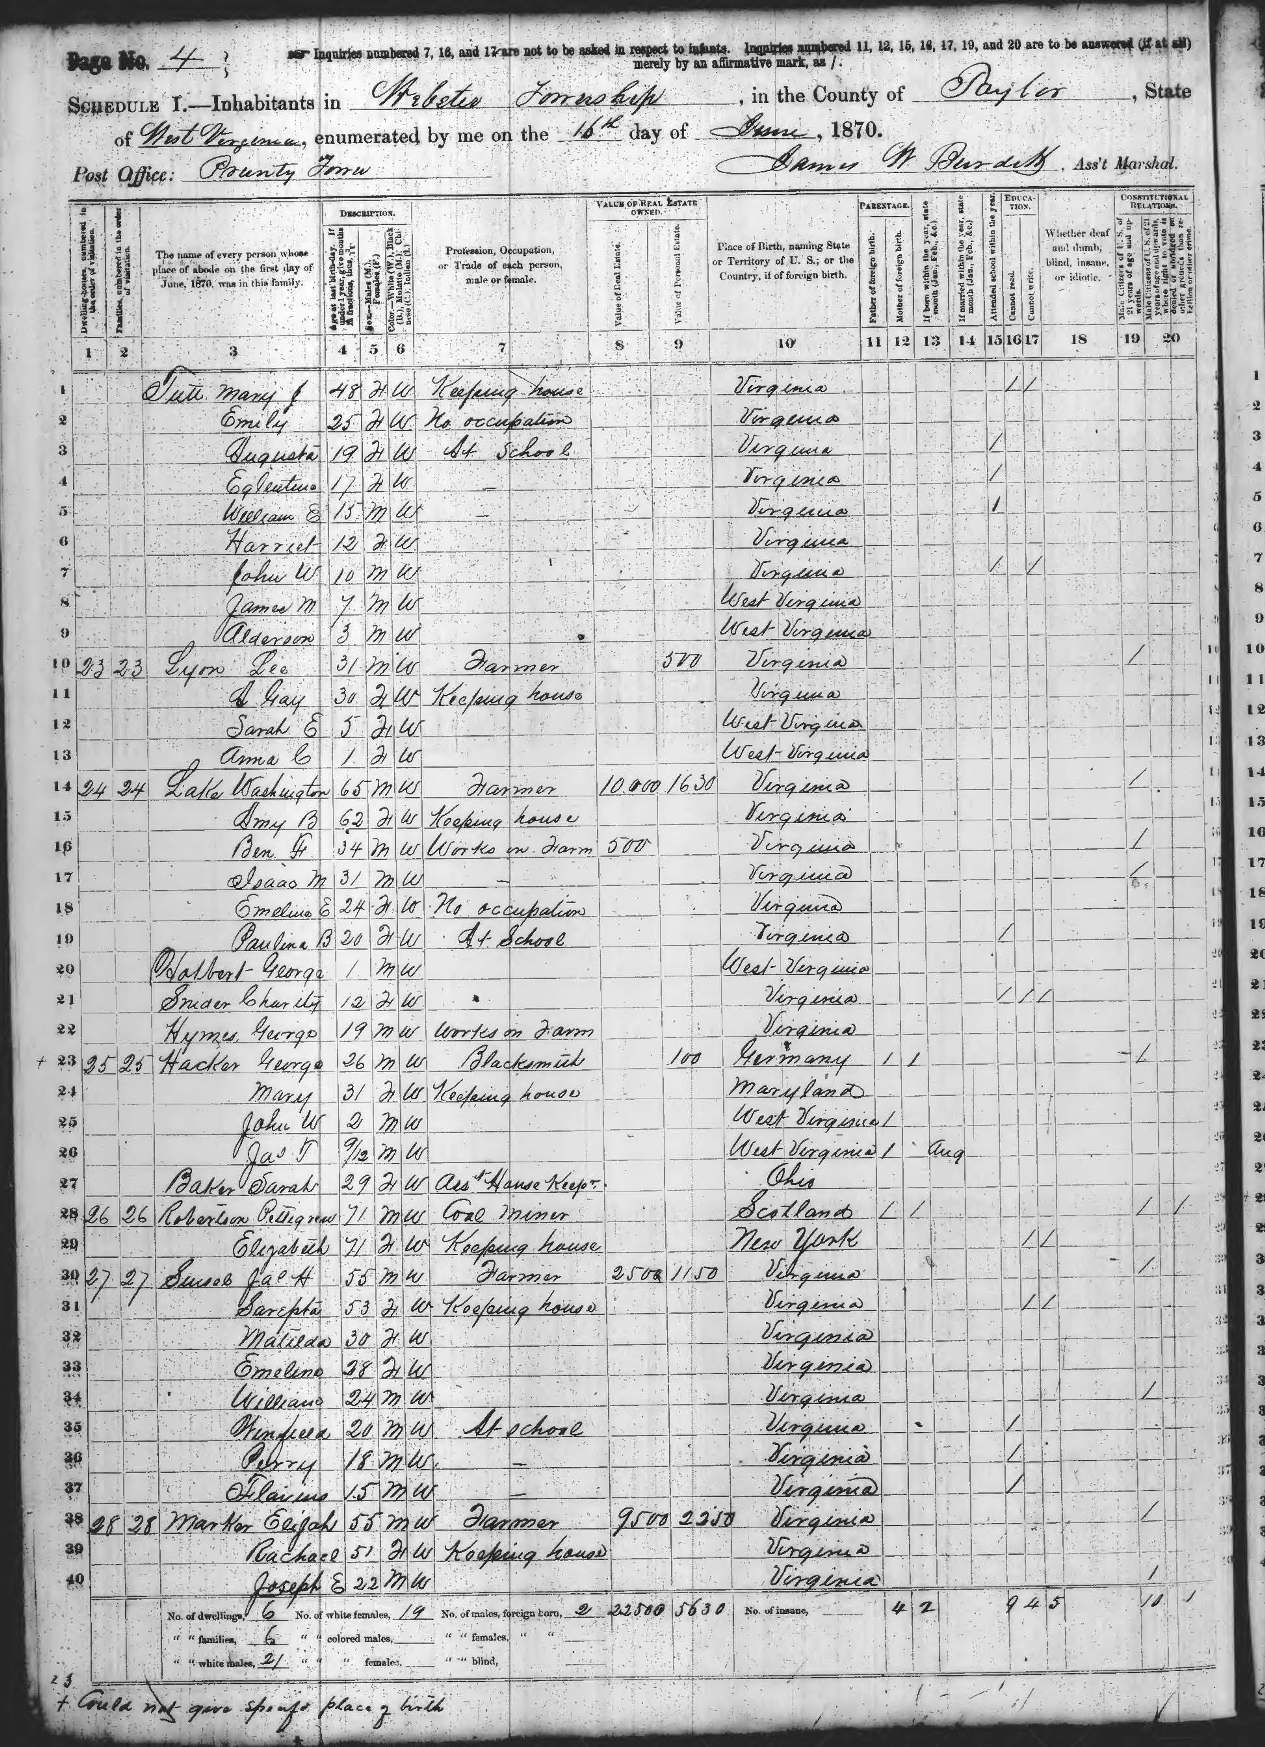 Page No. 4
Inquiries numbered 7, 16, and 17 are not to be asked in respect to infants. Inquiries numbered 11, 12, 15, 16, 17, 19, and 20 are to be answered (if at all)
merely by an affirmative mark, as /.
SCHEDULE 1.—Inhabitants in Webster Township, in the County of Taylor, State
of West Virginia, enumerated by me on the 16th day of June, 1870.
Post Office: Prunty Town James W Burdett, Ass't Marshal.
DESCRIPTION. VALUE OF REAL ESTATE OWNED. PARENTAGE. EDUCATION. CONSTITUTIONAL RELATIONS.
Dwelling-houses, numbered in the order of visitation.
Families, numbered in the order of visitation.
The name of every person whose place of abode on the first day of June, 1870, was in this family.
Age at last birth-day. If under 1 year, give months in fractions, thus, 3/12
Sex.—Males (M.), Females (F.)
Color.—White (W.), Black (B.), Mulatto (M.), Chinese (C.), Indian (I.)
Profession, Occupation, or Trade of each person, male or female.
Value of Real Estate.
Value of Personal Estate.
Place of Birth, naming State or Territory of U. S.; or the Country, if of foreign birth.
Father of foreign birth.
Mother of foreign birth.
If born within the year, state month (Jan., Feb., &c.)
If married within the year, state month (Jan., Feb., &c.)
Attended school within the year.
Cannot read.
Cannot write.
Whether deaf and dumb, blind, insane, or idiotic.
Male Citizens of U. S. of 21 years of age and upwards.
Male Citizens of U. S. of 21 years of age and upwards, where right to vote is denied or abridged on other grounds than rebellion or other crime.
1 2 3 4 5 6 7 8 9 10 11 12 13 14 15 16 17 18 19 20
1 Mary J 48 F W Keeping house Virginia / /
2 Emily 25 F W No occupation Virginia
3 Augusta 19 F W At School Virginia /
4 Eglentine 17 F W — Virginia /
5 William E 15 M W — Virginia /
6 Harriet 12 F W Virginia
7 John W 10 M W Virginia / /
8 James M 7 M W West Virginia
9 Alderson 3 M W West Virginia
10 23 23 Lyon Lee 31 M W Farmer 500 Virginia /
11 Gay 30 F W Keeping house Virginia
12 Sarah E 5 F W West Virginia
13 Anna C 1 F W West Virginia
14 24 24 Lake Washington 65 M W Farmer 10,000 1630 Virginia /
15 Amy B 62 F W Keeping house Virginia
16 Ben F 34 M W Works on Farm 500 Virginia /
17 Isaac M 31 M W — Virginia /
18 Emeline E 24 F W No occupation Virginia
19 Paulina B 20 F W At School Virginia /
20 Holbert George 1 M W West Virginia
21 Snider Charity 12 F W Virginia / / /
22 Hymes George 19 M W Works on Farm Virginia
+ 23 25 25 Hacker George 26 M W Blacksmith 100 Germany / / /
24 Mary 31 F W Keeping house Maryland
25 John W 2 M W West Virginia /
26 Jas T 9/12 M W West Virginia / Aug
27 Baker Sarah 29 F W Asst House Keepr. Ohio
28 26 26 Robertson Pettigrew 71 M W Coal Miner Scotland / / / /
29 Elizabeth 71 F W Keeping house New York / /
30 27 27 Sinsel Jas H 55 M W Farmer 2500 1150 Virginia /
31 Sarepta 53 F W Keeping house Virginia / /
32 Matilda 30 F W Virginia
33 Emeline 28 F W Virginia
34 William 24 M W Virginia /
35 Winfield 20 M W At school Virginia /
36 Perry 18 M W — Virginia /
37 Flavius 15 M W — Virginia /
38 28 28 Marker Elijah 55 M W Farmer 9500 2250 Virginia /
39 Rachael 51 F W Keeping house Virginia
40 Joseph E 22 M W Virginia /
No. of dwellings, 6 No. of white females, 19 No. of males, foreign born, 2 22500 5630 No. of insane, 4 2 9 4 5 10 1
" " families, 6 " " colored males, " " females, " "
" " white males, 21 " " " females, " " blind,
+ Could not give specific place of birth